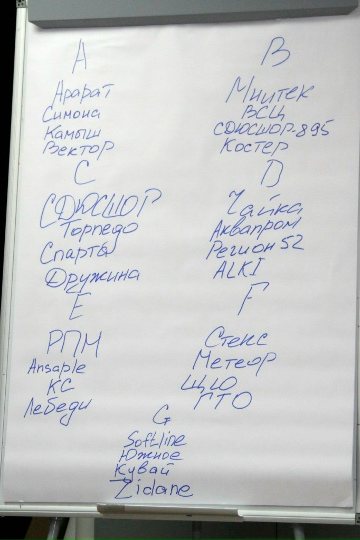 A
Арарат
Симона
Камыш
Вектор
B
Миитек
ВСЦ
СДЮСШОР-895
Костер
C
СДЮСШОР
Торпедо
Спарта
Дружина
D
Чайка
Аквапром
Регион 52
ALKI
E
РПМ
Ansaple
КС
Лебеди
F
Стекс
Метеор
ЩЮ
ГТО
G
Softline
Южное
Кувай
Zidane